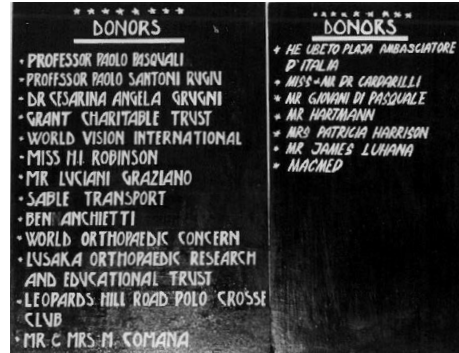 DONORS
PROFESSOR PAOLO PASQUALI
PROFESSOR PAOLO SANTONI RUGIU
DR CESARINA ANGELA GRUGNI
GRANT CHARITABLE TRUST
WORLD VISION INTERNATIONAL
MISS H.I. ROBINSON
MR LUCIANI GRAZIANO
SABLE TRANSPORT
BEN ANCHIETTI
WORLD ORTHOPAEDIC CONCERN
LUSAKA ORTHOPAEDIC RESEARCH
AND EDUCATIONAL TRUST
LEOPARDS HILL ROAD POLO CROSSE
CLUB
MR C MRS M. COMANA
DONORS
HE UBETO PLAJA AMBASCIATORE
D'ITALIA
MISS + MR DR CARDARILLI
MR GIOVANI DI PASQUALE
MR HARTMANN
MRS PATRICIA HARRISON
MR JAMES LUHANA
MACMED